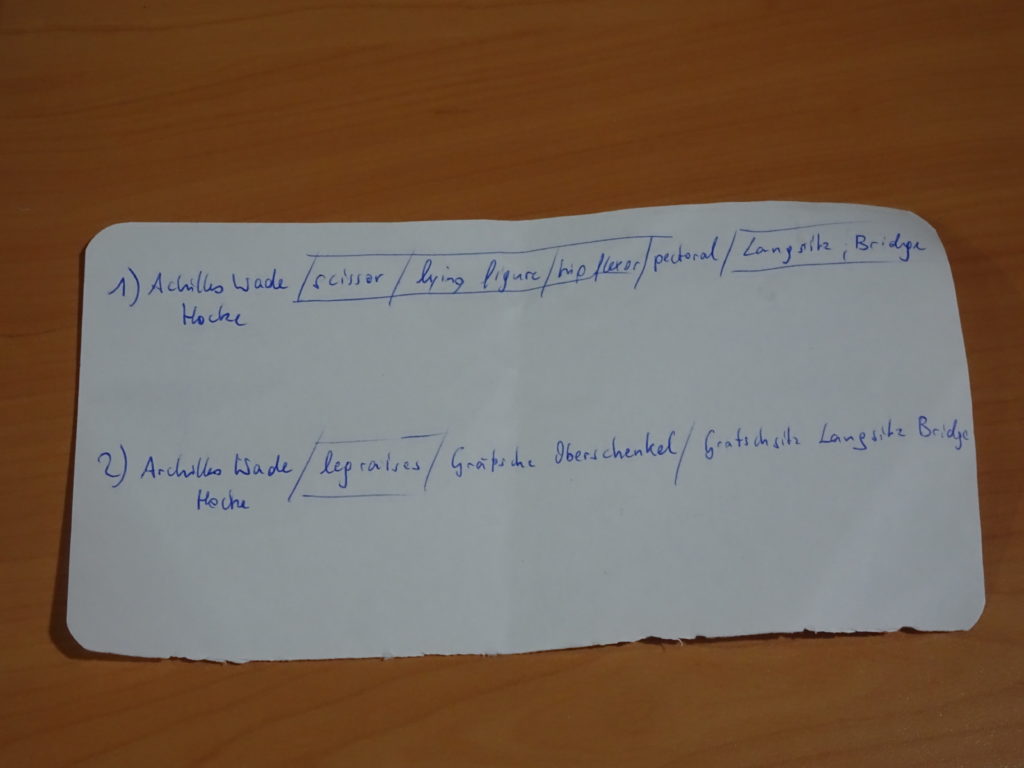 1) Achilles Wade / scissor / lying figure / hip flexor / pectoral / Langsitz, Bridge
Hocke
2) Archilles Wade / leg raises / Grätsche Oberschenkel / Gratschsitz Langsitz Bridge
Hocke